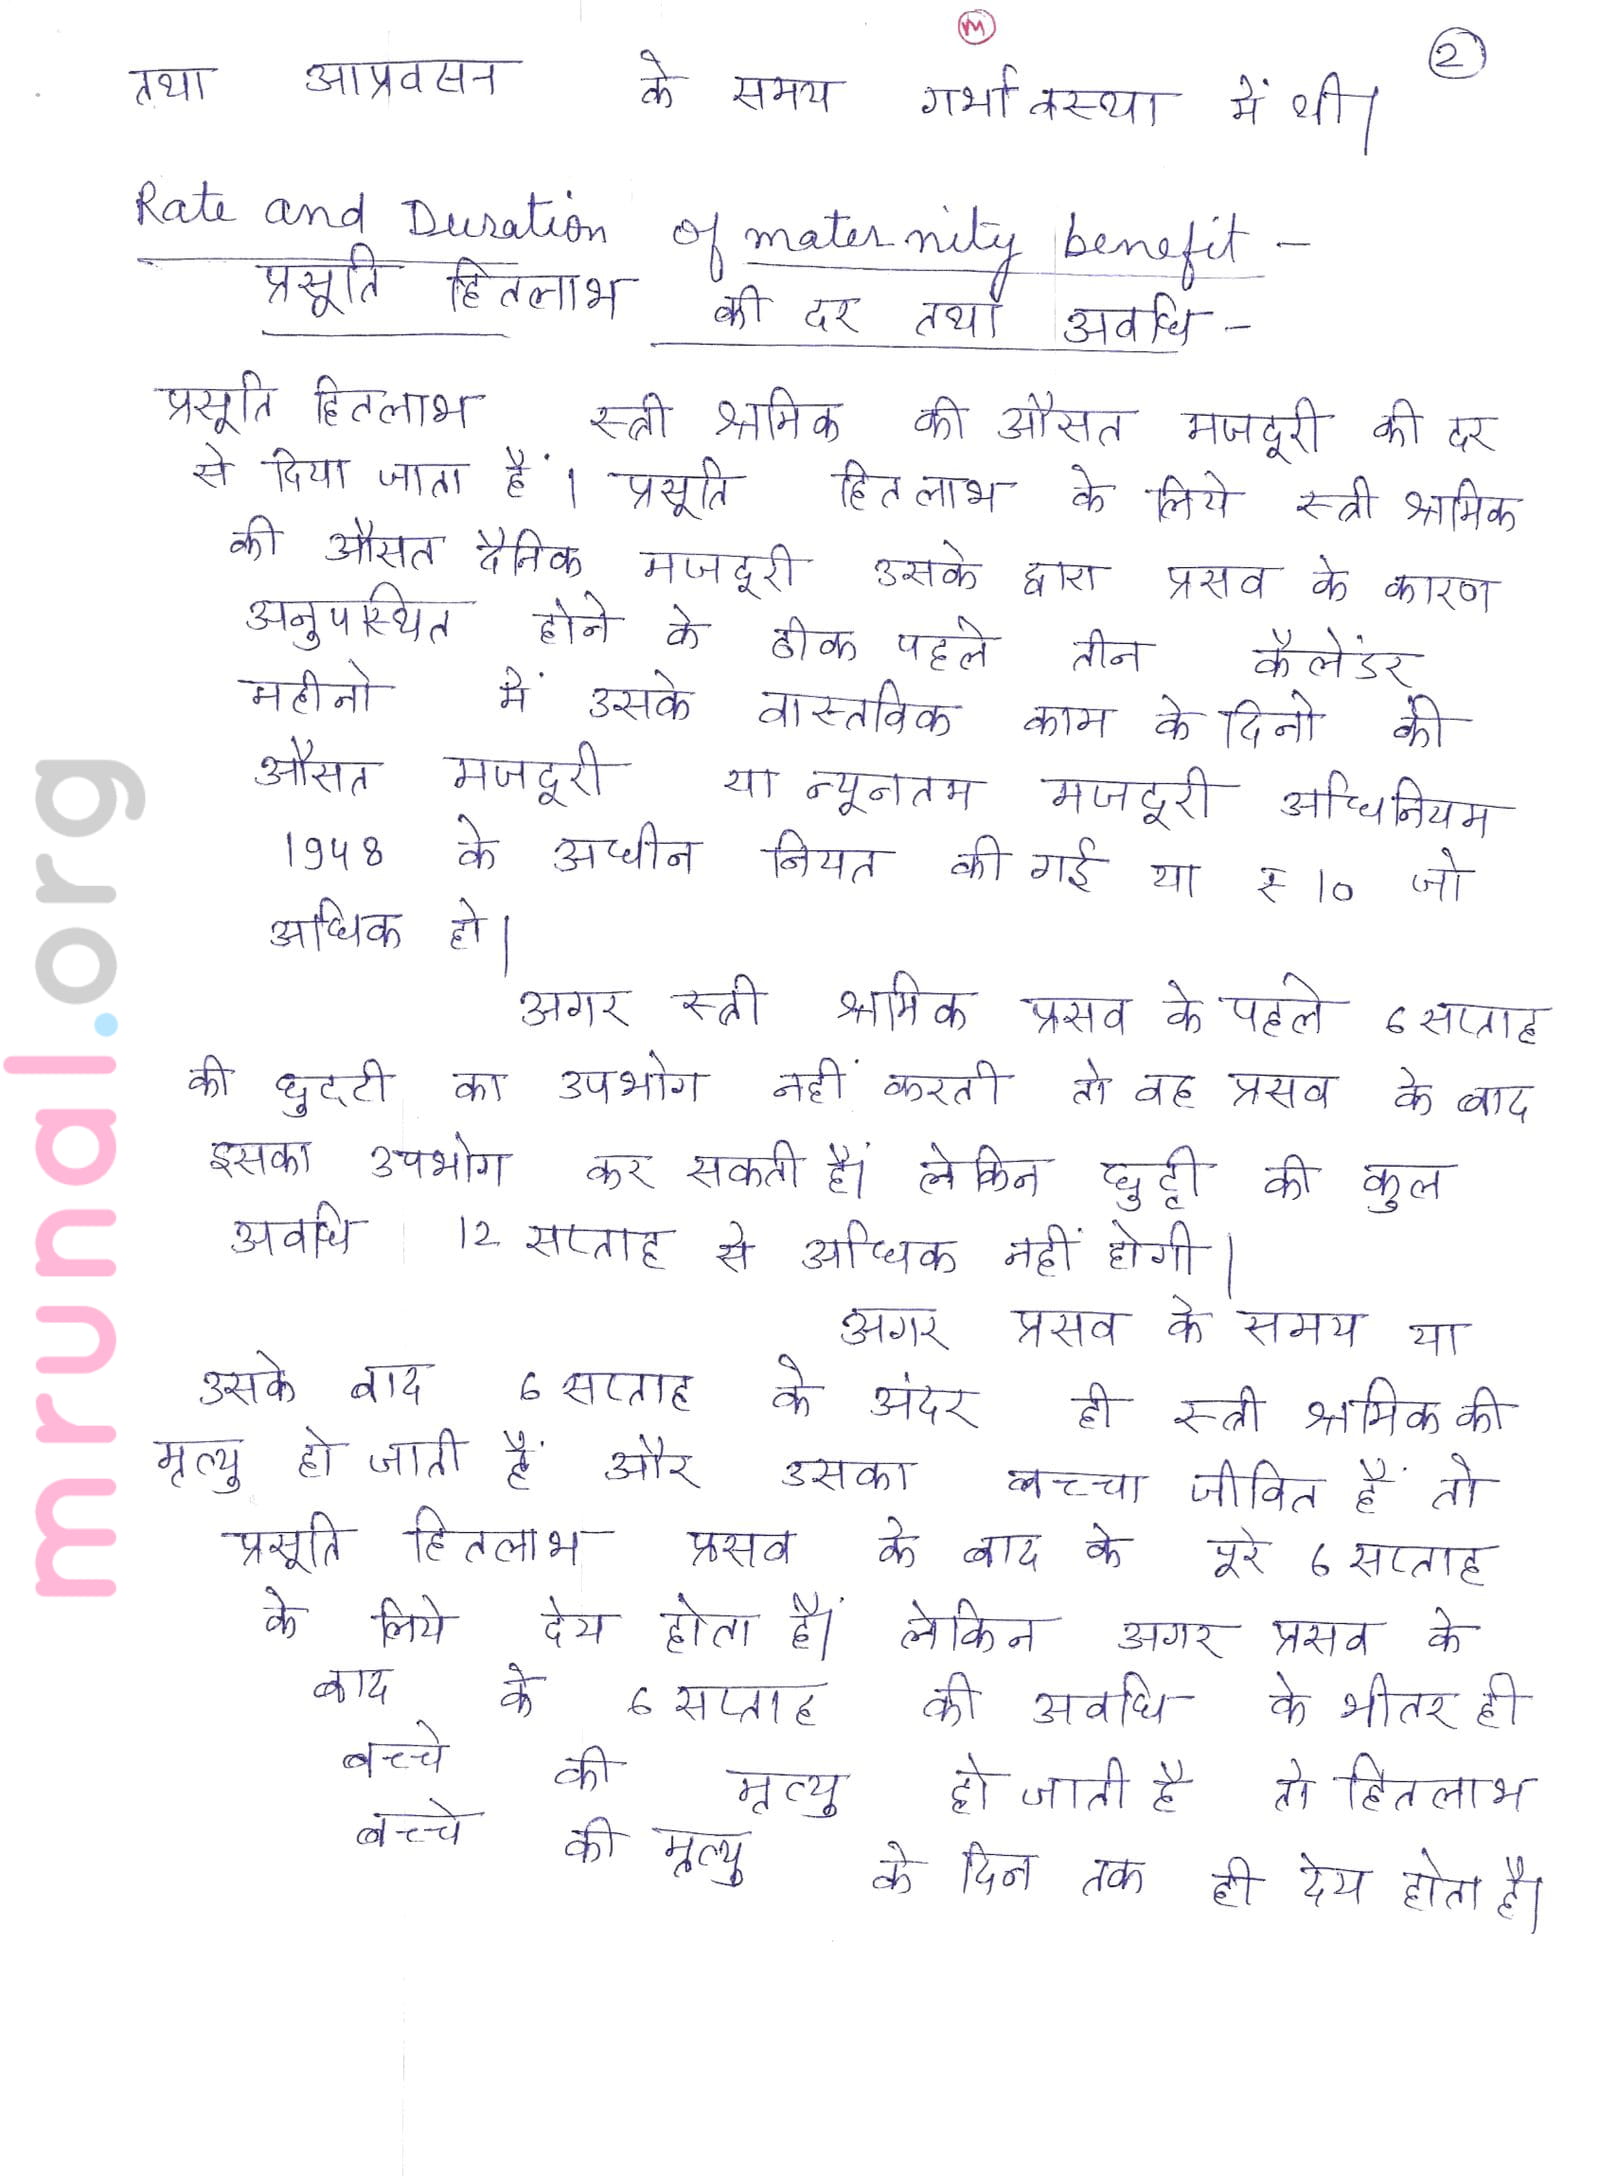 M
2
तथा आप्रवसन के समय गर्भावस्था में थी।
Rate and Duration of maternity benefit -
प्रसूति हितलाभ की दर तथा अवधि -
प्रसूति हितलाभ स्त्री श्रमिक की औसत मजदूरी की दर
से दिया जाता हैं। प्रसूति हितलाभ के लिये स्त्री श्रमिक
की औसत दैनिक मजदूरी उसके द्वारा प्रसव के कारण
अनुपस्थित होने के ठीक पहले तीन कैलेंडर
महीनो में उसके वास्तविक काम के दिनो की
औसत मजदूरी या न्यूनतम मजदूरी अधिनियम
1948 के अधीन नियत की गई या ₹ 10 जो
अधिक हो।
अगर स्त्री श्रमिक प्रसव के पहले 6 सप्ताह
की छुटटी का उपभोग नहीं करती तो वह प्रसव के बाद
इसका उपभोग कर सकती हैं। लेकिन छुट्टी की कुल
अवधि 12 सप्ताह से अधिक नहीं होगी।
अगर प्रसव के समय या
उसके बाद 6 सप्ताह के अंदर ही स्त्री श्रमिक की
मृत्यु हो जाती हैं और उसका बच्चा जीवित हैं तो
प्रसूति हितलाभ प्रसव के बाद के पूरे 6 सप्ताह
के लिये देय होता हैं। लेकिन अगर प्रसव के
बाद के 6 सप्ताह की अवधि के भीतर ही
बच्चे की मृत्यु हो जाती है तो हितलाभ
बच्चे की मृत्यु के दिन तक ही देय होता है।
mrunal.org